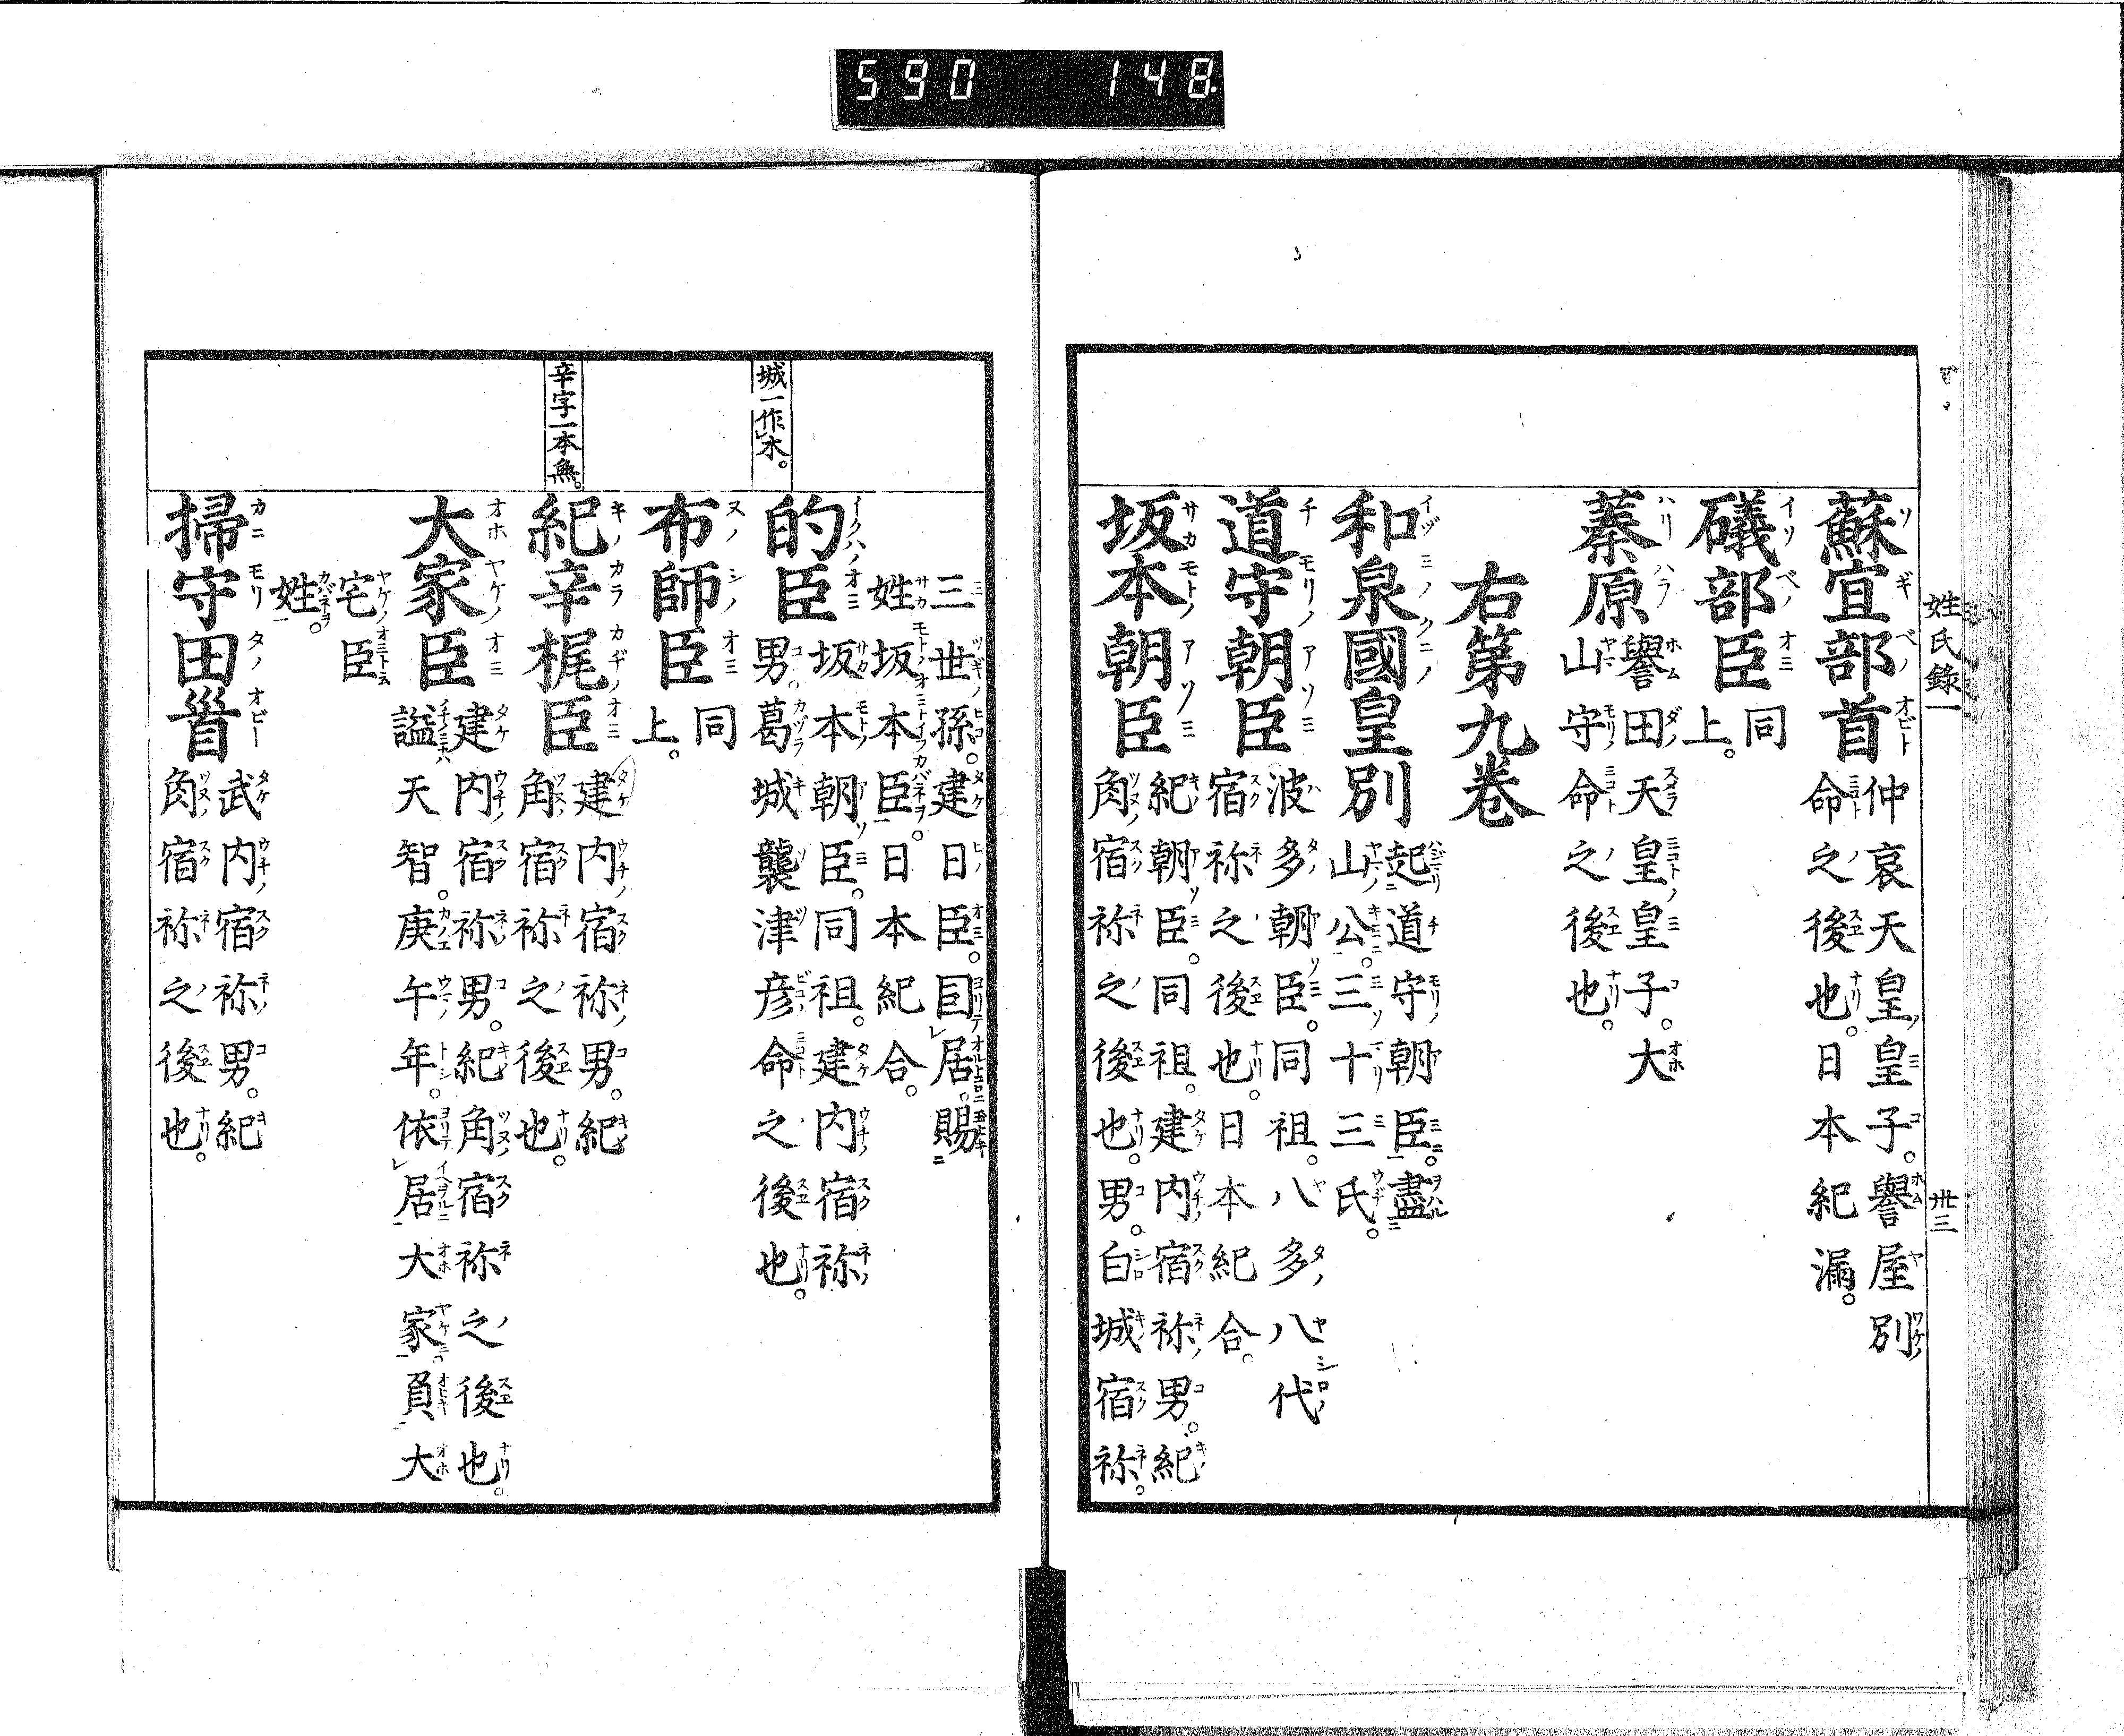 590 148
姓氏錄一 卅三
蘇宜部首 仲哀天皇皇子。譽屋別
命之後也。日本紀漏。
礒部臣 同
上。
蓁原 譽田天皇皇子。大
山守命之後也。
右第九卷
和泉國皇別 起道守朝臣。盡
山公。三十三氏。
道守朝臣 波多朝臣。同祖。八多八代
宿祢之後也。日本紀合。
坂本朝臣 紀朝臣。同祖。建内宿祢男。紀
角宿祢之後也。男。白城宿祢。
三世孫。建日臣。因居。賜
姓坂本臣。日本紀合。
城一作木。
的臣 坂本朝臣。同祖。建内宿祢
男。葛城襲津彦命之後也。
布師臣 同
上。
辛字一本無。
紀辛梶臣 建内宿祢男。紀
角宿祢之後也。
大家臣 建内宿祢男。紀角宿祢之後也。
謚天智。庚午年。依居大家。負大
宅臣
姓。
掃守田首 武内宿祢男。紀
角宿祢之後也。